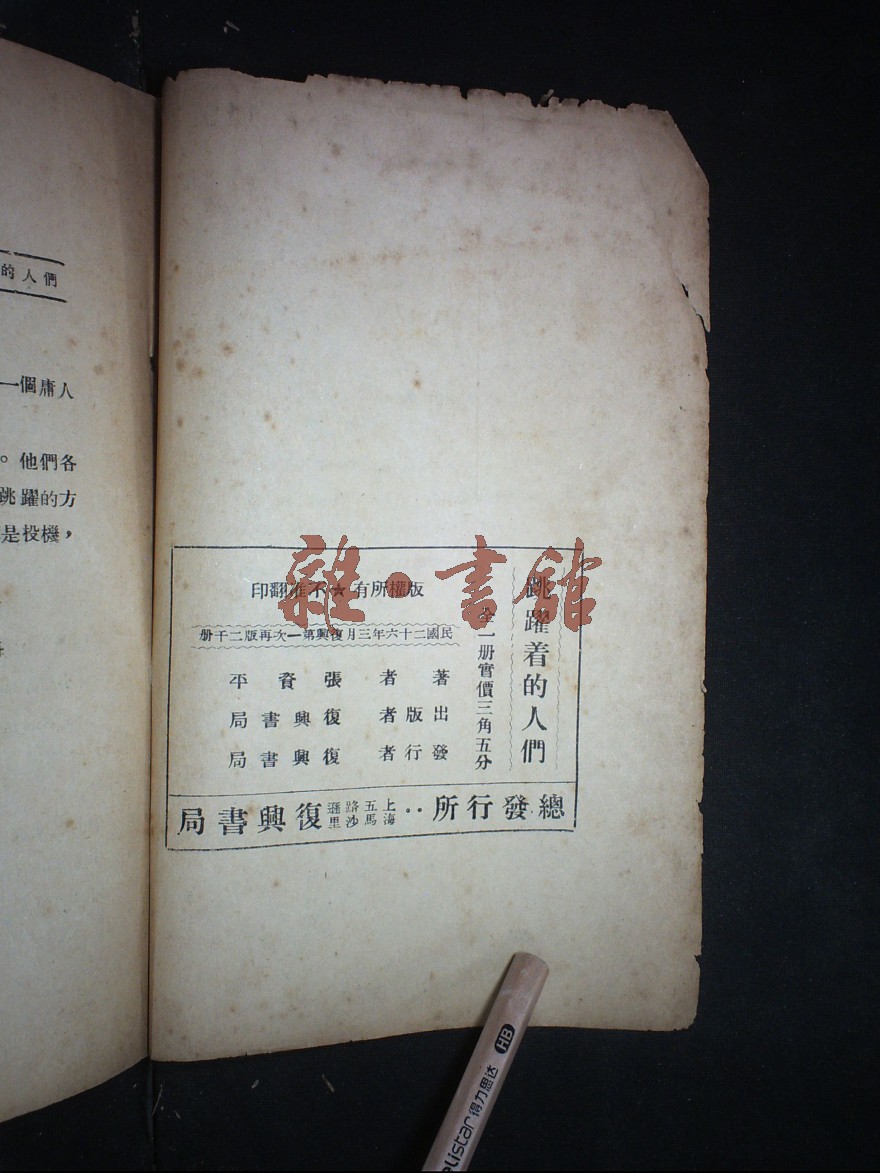 的人們
一個庸人
。他們各
跳躍的方
是投機，
雜·書館
跳躍着的人們
全一册實價三角五分
版權所有☆不准翻印
民國二十六年三月復興第一次再版二千册
著者張資平
出版者復興書局
發行者復興書局
總發行所：上海五馬路沙遜里復興書局
HB
elistar得力思达